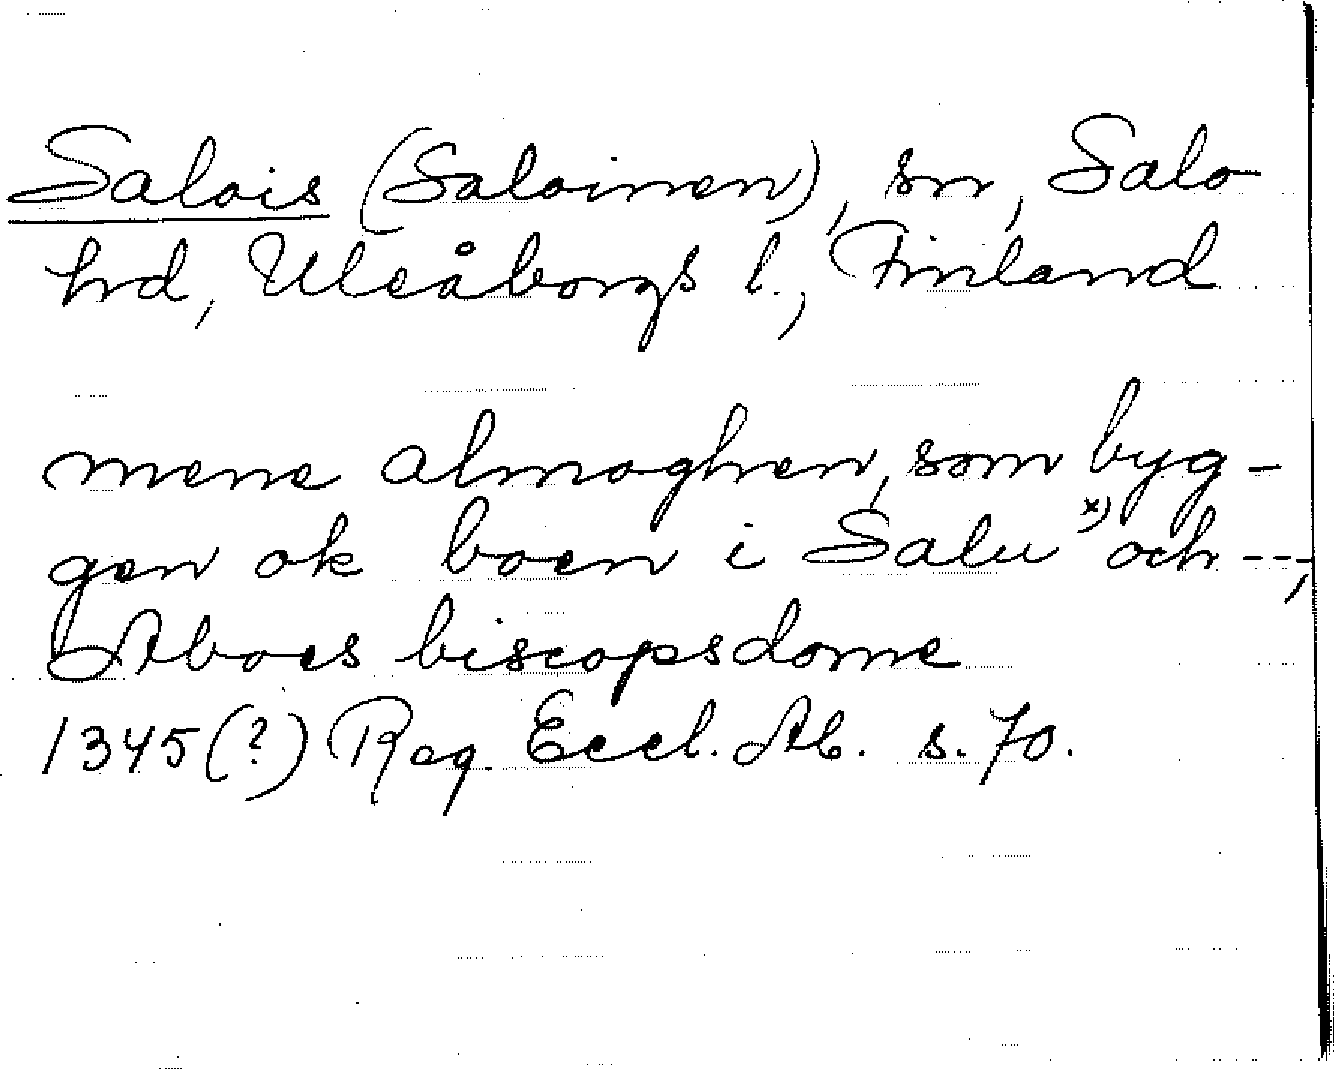 Salois (Saloinen), sn, Salo
hrd, Uleåborgs l., Finland
mene almoghen, som byg-
gen ok boen i Salu x) och --,
Aboes biscopsdome
1345(?) Reg. Eccl. Ab. s. 70.